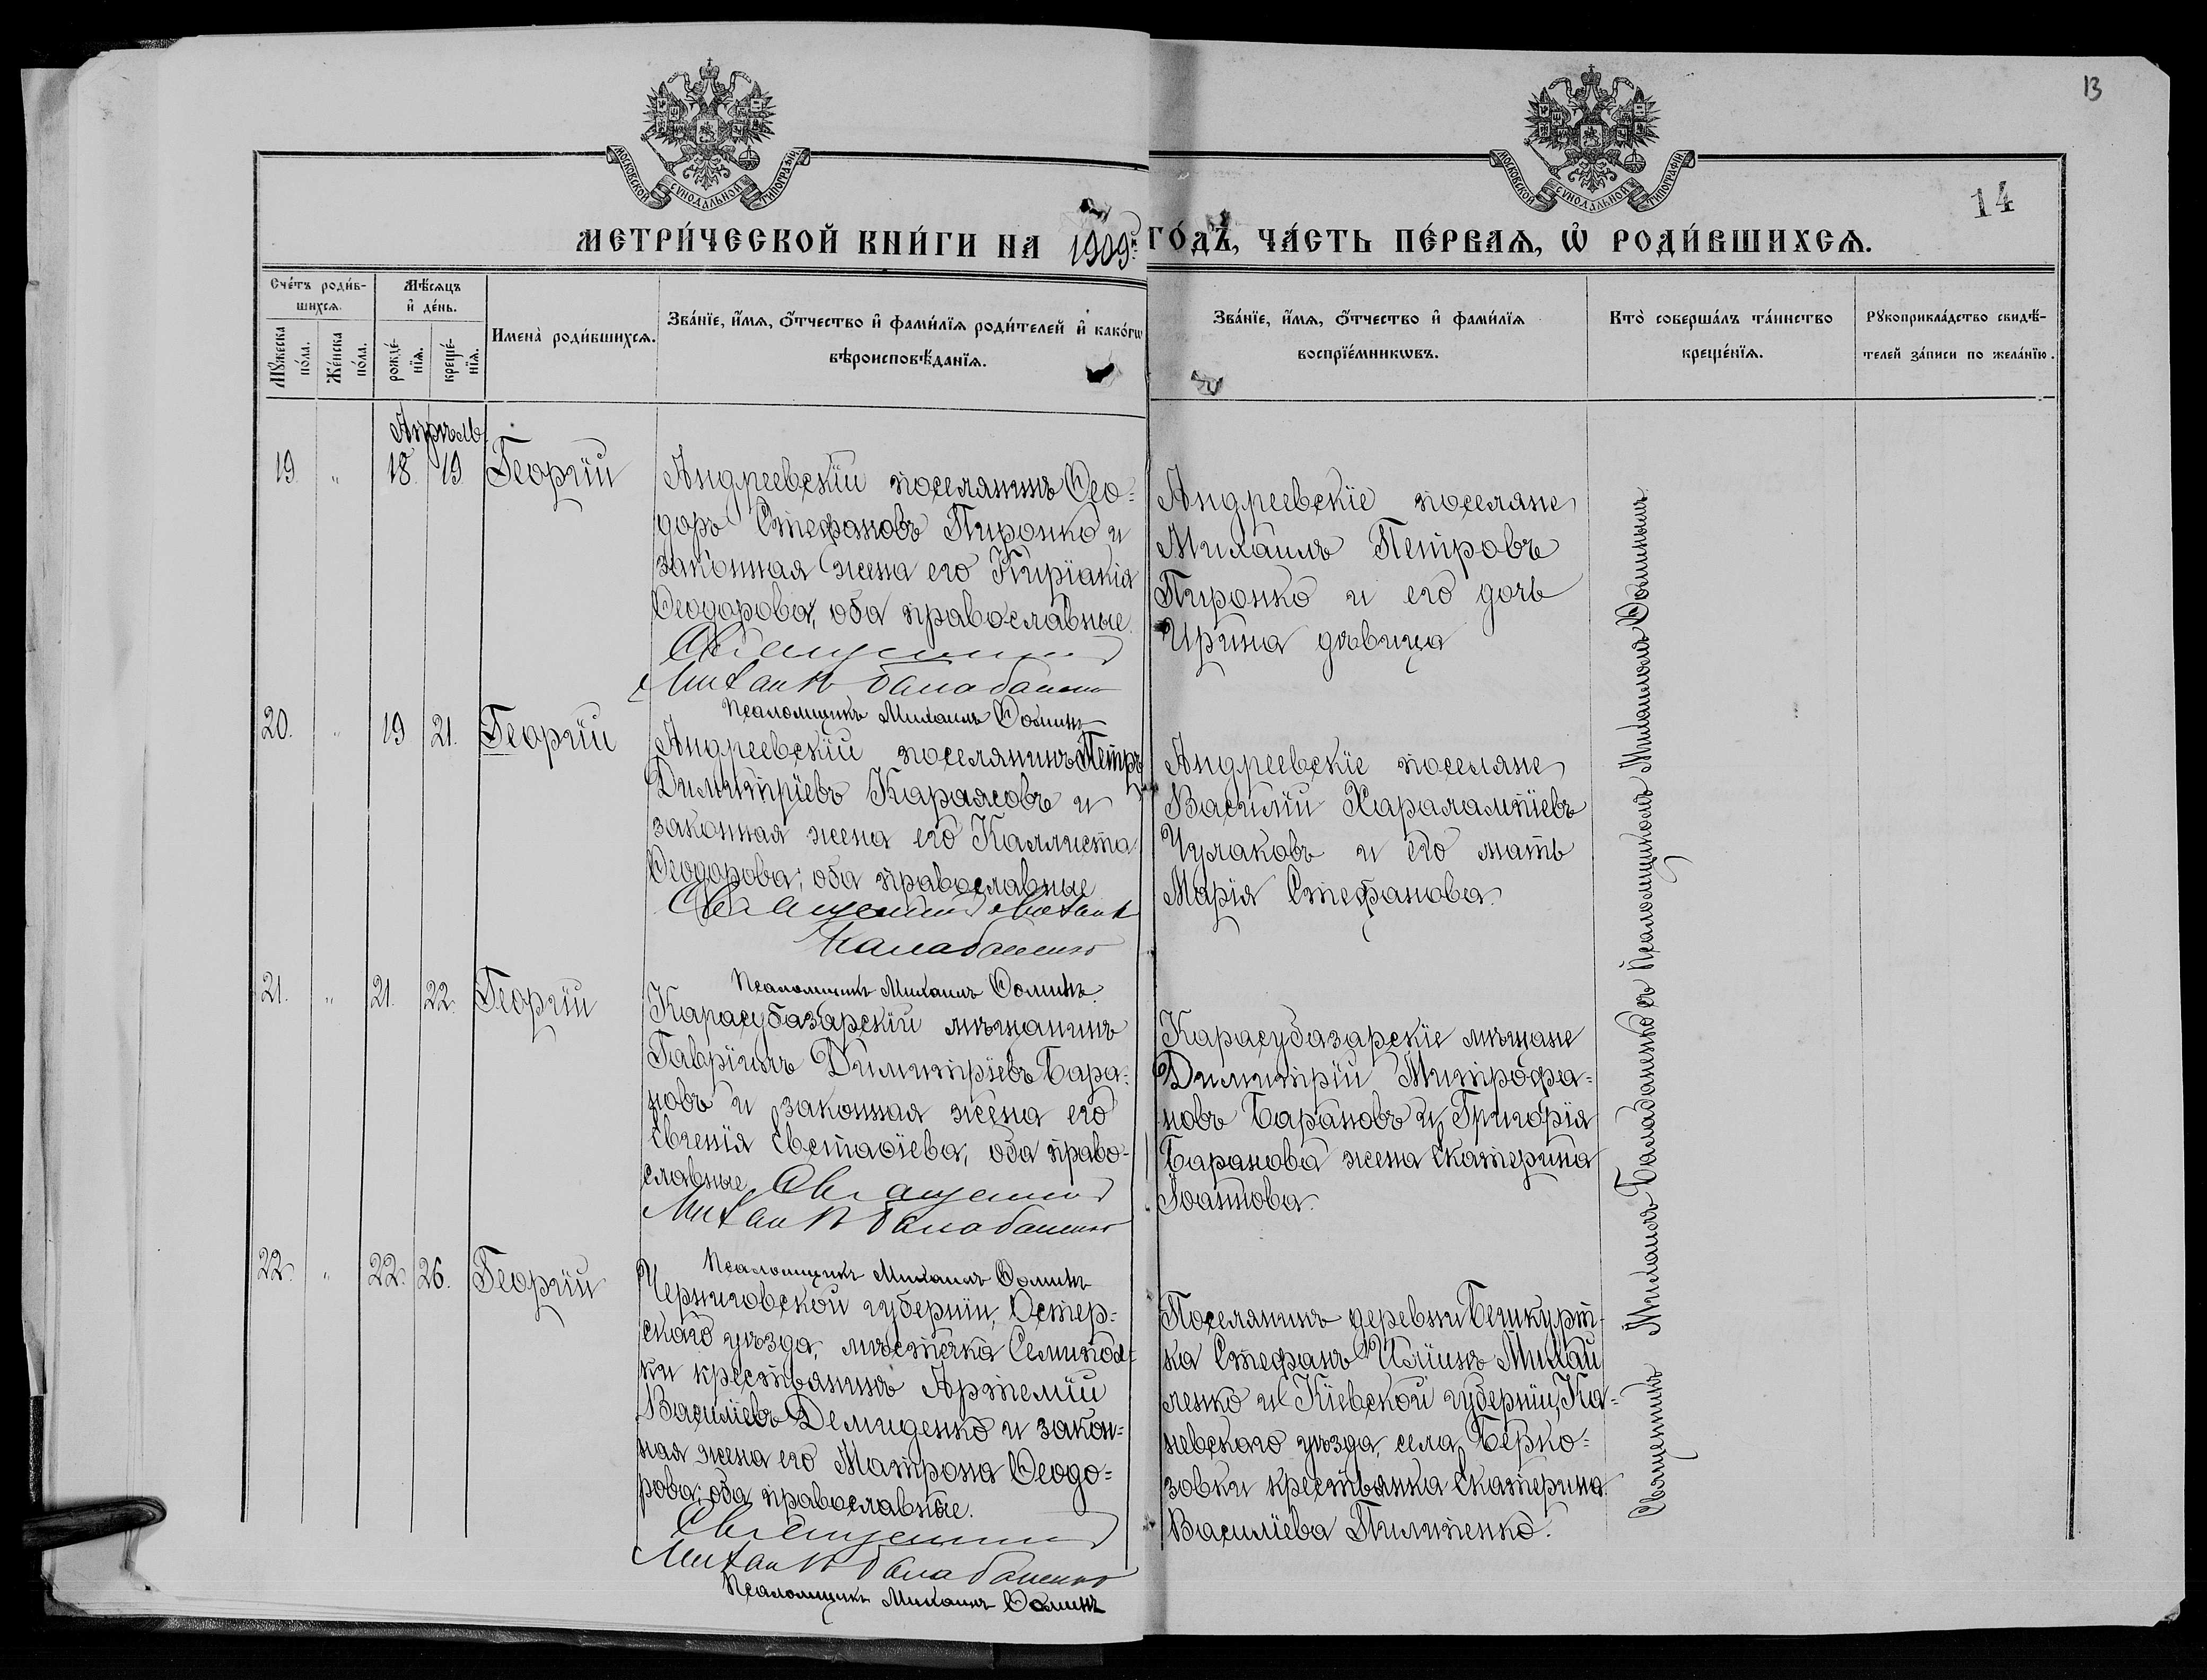 13
14
МОСКОВСКОЙ СѴНОДАЛЬНОЙ ТИПОГРАФІИ
МОСКОВСКОЙ СѴНОДАЛЬНОЙ ТИПОГРАФІИ
МЕТРИ́ЧЕСКОЙ КНИ́ГИ НА 1909 г. ГО́ДЪ, ЧА́СТЬ ПЕ́РВАѦ, Ѡ РОДИ́ВШИХСѦ.
Сче́тъ роди́в-
шихсѧ.
Мꙋ́жеска по́ла.
Же́нска по́ла.
Мѣ́сѧцъ
и҆ де́нь.
рожде́-
нїѧ.
креще́-
нїѧ.
Имена̀ роди́вшихсѧ.
Зва́нїе, и҆́мѧ, ѻ҆́тчество и҆ фами́лїѧ роди́телей и҆ како́гѡ
вѣроисповѣ́данїѧ.
Зва́нїе, и҆́мѧ, ѻ҆́тчество и҆ фами́лїѧ
воспрїе́мникѡвъ.
Кто̀ соверша́лъ та́инство
креще́нїѧ.
Рꙋкоприкла́дство свидѣ́-
телей за́писи по жела́нїю.
Апрѣль
19. " 18. 19. Георгій
Андреевскій поселянинъ Ѳео-
доръ Стефановъ Пиронко и
законная жена его Киріакія
Ѳеодорова, оба православные.
Священникъ
Михаилъ Балабаненко
Псаломщикъ Михаилъ Ѳоминъ
Андреевскіе поселяне
Михаилъ Петровъ
Пиронко и его дочь
Ирина дѣвица
20. " 19 21. Георгій
Андреевскій поселянинъ Петръ
Димитріевъ Караясовъ и
законная жена его Каллиста
Ѳеодорова; оба православные
Священникъ Михаилъ
Балабаненко
Псаломщикъ Михаилъ Ѳоминъ.
Андреевскіе поселяне
Василій Харалампіевъ
Чулаковъ и его мать
Марія Стефанова.
21. " 21. 22. Георгій
Карасубазарскій мѣщанинъ
Гавріилъ Димитріевъ Бара-
новъ и законная жена его
Евгенія Евстафіева, оба право-
славные. Священникъ
Михаилъ Балабаненко
Псаломщикъ Михаилъ Ѳоминъ
Карасубазарскіе мѣщане
Димитрій Митрофа-
новъ Барановъ и Григорія
Баранова жена Екатерина
Іоаннова.
22. " 22. 26. Георгій
Черниговской губерніи, Остер-
скаго уѣзда, мѣстечка Семипол-
ки крестьянинъ Артемій
Василіевъ Демиденко и закон-
ная жена его Матрона Ѳеодо-
рова; оба православные.
Священникъ
Михаилъ Балабаненко
Псаломщикъ Михаилъ Ѳоминъ
Поселянинъ деревни Бешкурт-
ка Стефанъ Иліинъ Михай
ленко и Кіевской губерніи, Ка-
невскаго уѣзда, села Берко-
зовки крестьянка Екатерина
Василіева Пилипенко.
Священникъ Михаилъ Балабаненко съ Псаломщикомъ Михаиломъ Ѳоминымъ.